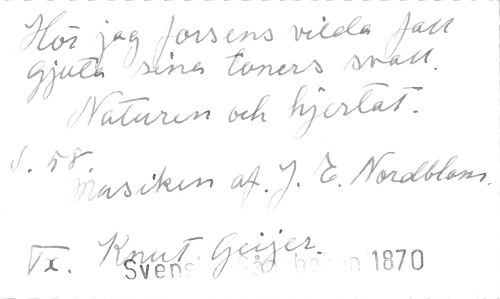 Hör jag forsens vilda fall
gjuta sina toners svall.
Naturen och hjertat.
s. 58.
Musiken af. J. E. Nordblom.
Tx. Knut Geijer.
Svens 1870